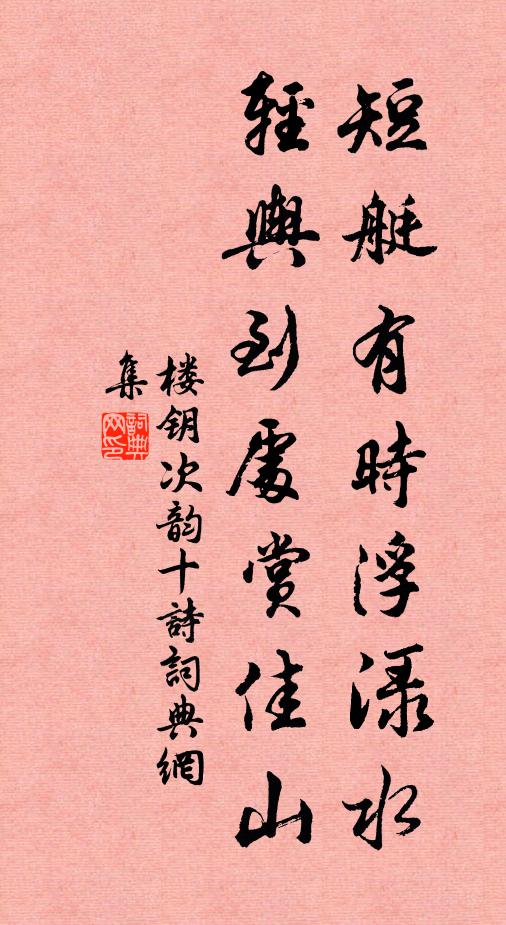 短艇有時浮渌水
輕輿到處賞佳山
楼钥次韵十詩詞典網
集
詞典
网印